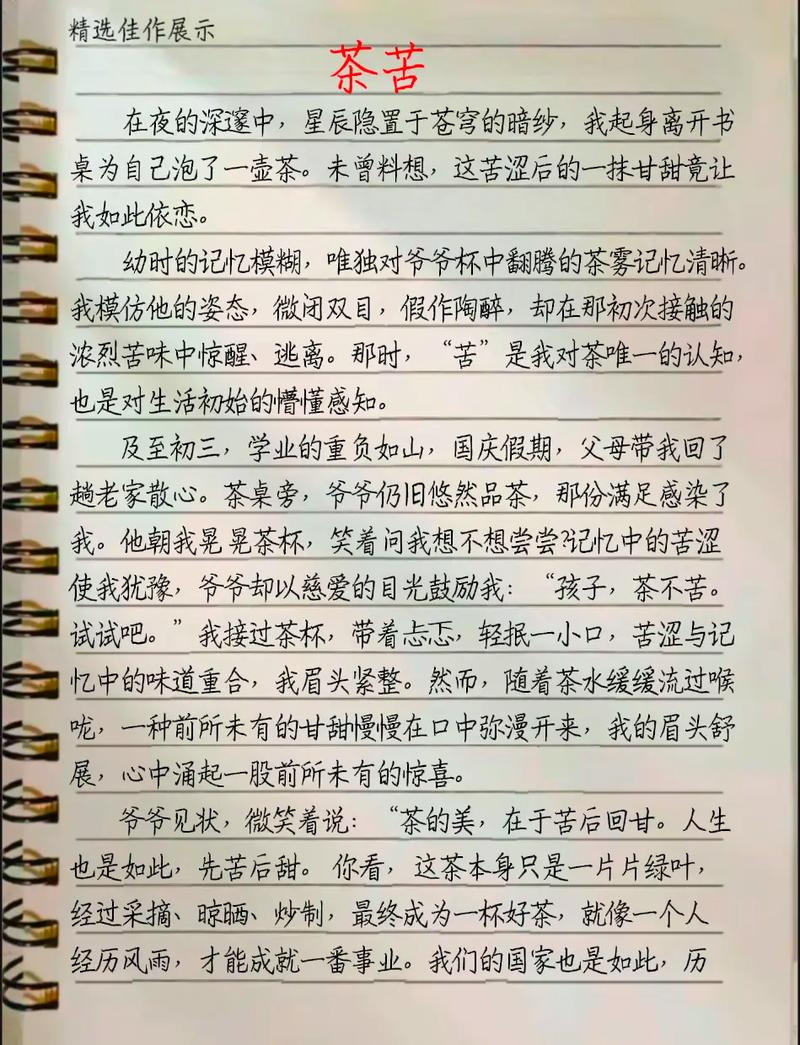 精选佳作展示
茶苦
在夜的深邃中，星辰隐置于苍穹的暗纱，我起身离开书
桌为自己泡了一壶茶。未曾料想，这苦涩后的一抹甘甜竟让
我如此依恋。
幼时的记忆模糊，唯独对爷爷杯中翻腾的茶雾记忆清晰。
我模仿他的姿态，微闭双目，假作陶醉，却在那初次接触的
浓烈苦味中惊醒、逃离。那时，“苦”是我对茶唯一的认知，
也是对生活初始的懵懂感知。
及至初三，学业的重负如山，国庆假期，父母带我回了
趟老家散心。茶桌旁，爷爷仍旧悠然品茶，那份满足感染了
我。他朝我晃晃茶杯，笑着问我想不想尝尝?记忆中的苦涩
使我犹豫，爷爷却以慈爱的目光鼓励我：“孩子，茶不苦。
试试吧。”我接过茶杯，带着忐忑，轻抿一小口，苦涩与记
忆中的味道重合，我眉头紧整。然而，随着茶水缓缓流过喉
咙，一种前所未有的甘甜慢慢在口中弥漫开来，我的眉头舒
展，心中涌起一股前所未有的惊喜。
爷爷见状，微笑着说：“茶的美，在于苦后回甘。人生
也是如此，先苦后甜。你看，这茶本身只是一片片绿叶，
经过采摘、晾晒、炒制，最终成为一杯好茶，就像一个人
经历风雨，才能成就一番事业。我们的国家也是如此，历